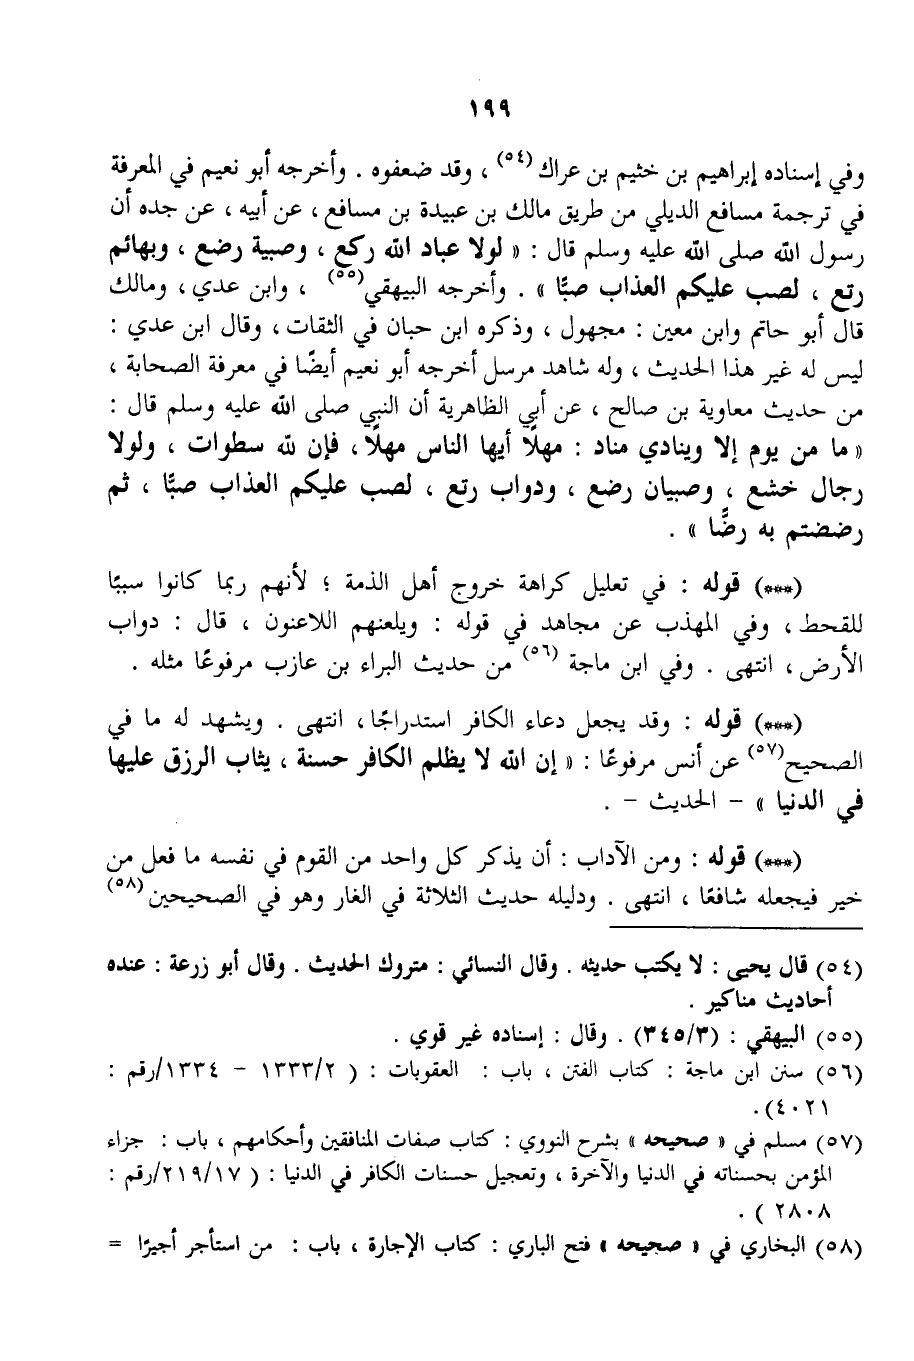 ١٩٩
وفي إسناده إبراهيم بن خثيم بن عراك (٥٤) ، وقد ضعفوه . وأخرجه أبو نعيم في المعرفة
في ترجمة مسافع الديلي من طريق مالك بن عبيدة بن مسافع ، عن أبيه ، عن جده أن
رسول الله صلى الله عليه وسلم قال : « لولا عباد الله ركع ، وصبية رضع ، وبهائم
رتع ، لصب عليكم العذاب صبًّا » . وأخرجه البيهقي(٥٥) ، وابن عدي ، ومالك
قال أبو حاتم وابن معين : مجهول ، وذكره ابن حبان في الثقات ، وقال ابن عدي :
ليس له غير هذا الحديث ، وله شاهد مرسل أخرجه أبو نعيم أيضًا في معرفة الصحابة ،
من حديث معاوية بن صالح ، عن أبي الظاهرية أن النبي صلى الله عليه وسلم قال :
« ما من يوم إلا وينادي مناد : مهلًا أيها الناس مهلًا ، فإن لله سطوات ، ولولا
رجال خشع ، وصبيان رضع ، ودواب رتع ، لصب عليكم العذاب صبًّا ، ثم
رضضتم به رضًّا » .
(***) قوله : في تعليل كراهة خروج أهل الذمة ؛ لأنهم ربما كانوا سببًا
للقحط ، وفي المهذب عن مجاهد في قوله : ويلعنهم اللاعنون ، قال : دواب
الأرض ، انتهى . وفي ابن ماجة (٥٦) من حديث البراء بن عازب مرفوعًا مثله .
(***) قوله : وقد يجعل دعاء الكافر استدراجًا ، انتهى . ويشهد له ما في
الصحيح(٥٧) عن أنس مرفوعًا : « إن الله لا يظلم الكافر حسنة ، يثاب الرزق عليها
في الدنيا » - الحديث - .
(***) قوله : ومن الآداب : أن يذكر كل واحد من القوم في نفسه ما فعل من
خير فيجعله شافعًا ، انتهى . ودليله حديث الثلاثة في الغار وهو في الصحيحين(٥٨)
(٥٤) قال يحيى : لا يكتب حديثه . وقال النسائي : متروك الحديث . وقال أبو زرعة : عنده
أحاديث مناكير .
(٥٥) البيهقي : (٣٤٥/٣) . وقال : إسناده غير قوي .
(٥٦) سنن ابن ماجة : كتاب الفتن ، باب : العقوبات : ( ١٣٣٣/٢ – ١٣٣٤/رقم :
٤٠٢١).
(٥٧) مسلم في « صحيحه » بشرح النووي : كتاب صفات المنافقين وأحكامهم ، باب : جزاء
المؤمن بحسناته في الدنيا والآخرة ، وتعجيل حسنات الكافر في الدنيا : ( ٢١٩/١٧/رقم :
٢٨٠٨ ) .
(٥٨) البخاري في « صحيحه » فتح الباري : كتاب الإجارة ، باب : من استأجر أجيرًا =